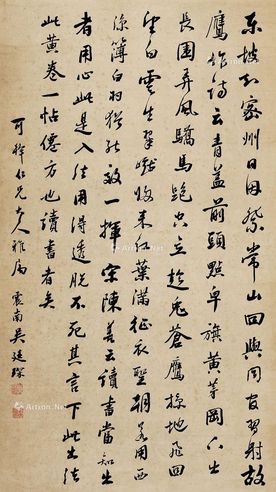 东坡知密州日因祭常山回与同官习射故
鹰作诗云青盖前头点皂旗黄茅冈下出
长围弄风骄马跑空立趁兔苍鹰掠地飞回
望白云生翠巘归来红叶满征衣圣朝若用西
凉簿白羽犹能效一挥宋陈善云读书当知出
者用心此是入法用得透脱不死其言下此出法
此黄卷一帖僊方也读书者矣
可 仁兄大人雅属 震南吴廷琛